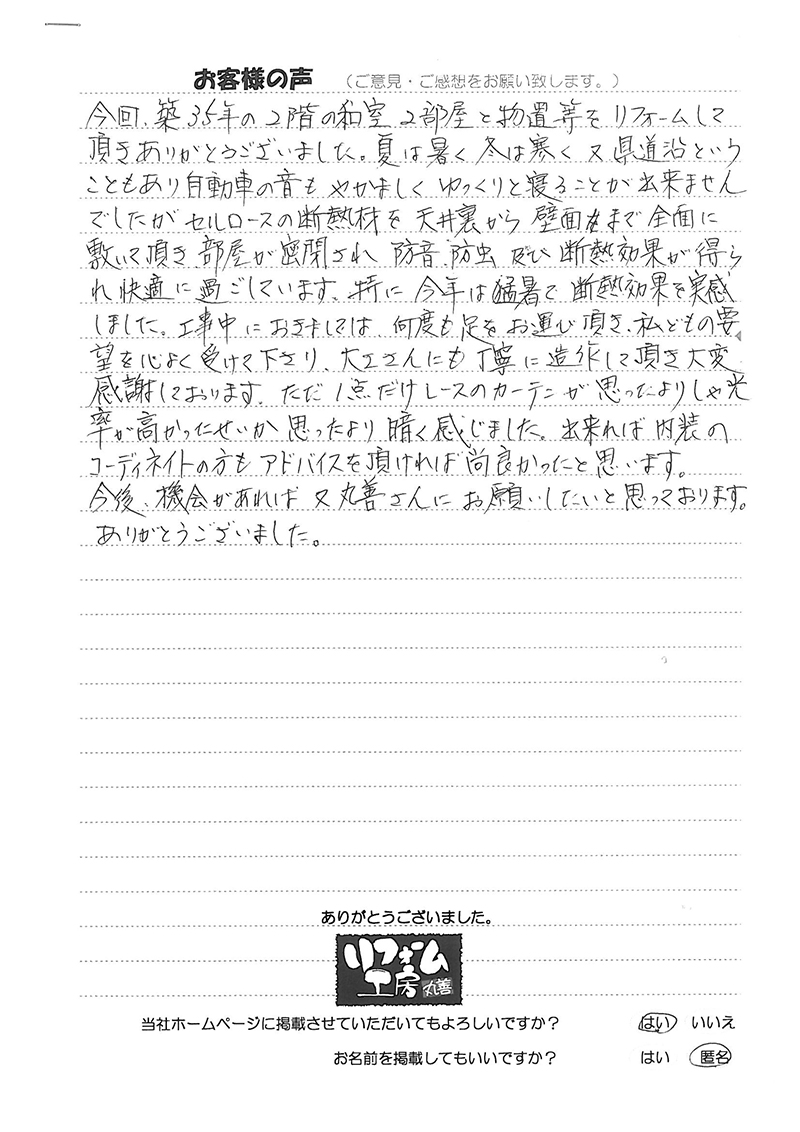 お客様の声 （ご意見・ご感想をお願い致します。）
今回、築35年の2階の和室2部屋と物置等をリフォームして
頂きありがとうございました。夏は暑く冬は寒く又県道沿という
こともあり自動車の音もやかましくゆっくりと寝ることが出来ません
でしたがセルロースの断熱材を天井裏から壁面まで全面に
敷いて頂き、部屋が密閉され防音、防虫及び断熱効果が得ら
れ快適に過ごしています、特に今年は猛暑で断熱効果を実感
しました。工事中におきましては、何度も足をお運び頂き、私どもの要
望を心よく受けて下さり、大工さんにも丁寧に造作して頂き大変
感謝しております、ただ1点だけレースのカーテンが思ったよりしゃ光
率が高かったせいか思ったより暗く感じました。出来れば内装の
コーディネイトの方もアドバイスを頂ければ尚良かったと思います。
今後、機会があれば又丸善さんにお願いしたいと思っております。
ありがとうございました。
ありがとうございました。
リフォーム
工房 丸善
当社ホームページに掲載させていただいてもよろしいですか？ はい いいえ
お名前を掲載してもいいですか？ はい 匿名